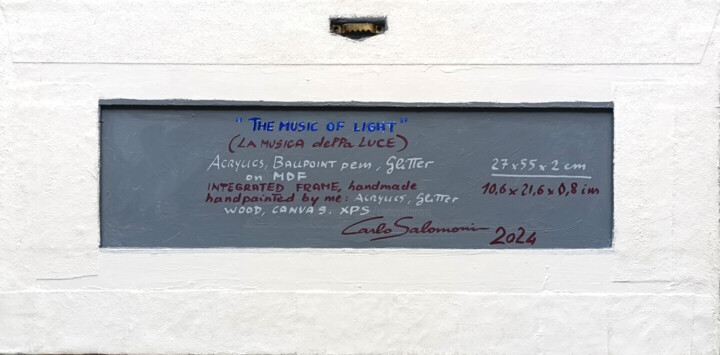 "THE MUSIC OF LIGHT"
(LA MUSICA della LUCE)
ACRYLICS, BALLPOINT pen, Glitter
on MDF
27 x 55 x 2 cm
INTEGRATED FRAME, handmade
10,6 x 21,6 x 0,8 in
handpainted by me: ACRYLICS, Glitter
WOOD, CANVAS, XPS
Carlo Salomoni 2024